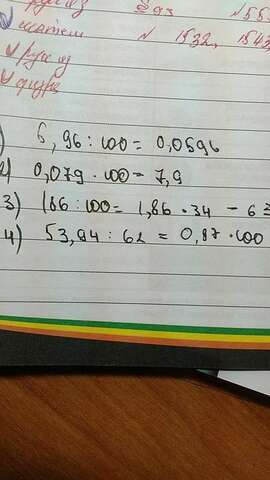 № 55
№ 1532, 1543
) 5,96 : 100 = 0,0596
2) 0,079 · 100 = 7,9
3) 186 : 100 = 1,86 · 34 - 63
4) 53,94 : 62 = 0,87 · 100